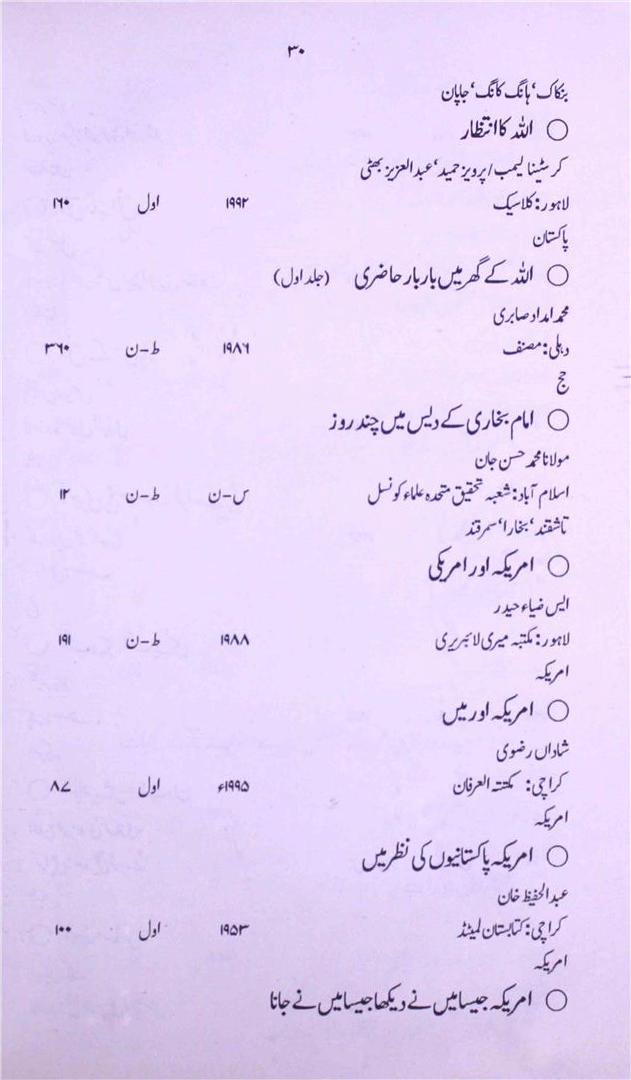 ۳۰
بنکاک‘ ہانگ کانگ‘ جاپان
○ اللہ کا انتظار
کرسٹینا لیمب / پرویز حمید‘ عبدالعزیز بھٹی
لاہور: کلاسیک ۱۹۹۲ اول ۱۶۰
پاکستان
○ اللہ کے گھر میں بار بار حاضری (جلد اول)
محمد امداد صابری
دہلی: مصنف ۱۹۸۶ ط-ن ۳۶۰
حج
○ امام بخاری کے دیس میں چند روز
مولانا محمد حسن جان
اسلام آباد: شعبہ تحقیق متحدہ علماء کونسل س-ن ط-ن ۱۲
تاشقند‘ بخارا‘ سمرقند
○ امریکہ اور امریکی
ایس ضیاء حیدر
لاہور: مکتبہ میری لائبریری ۱۹۸۸ ط-ن ۱۹۱
امریکہ
○ امریکہ اور میں
شاداں رضوی
کراچی: مکتبۃ العرفان ۱۹۹۵ء اول ۸۷
امریکہ
○ امریکہ پاکستانیوں کی نظر میں
عبدالحفیظ خان
کراچی: کتابستان لمیٹڈ ۱۹۵۳ اول ۱۰۰
امریکہ
○ امریکہ جیسا میں نے دیکھا جیسا میں نے جانا